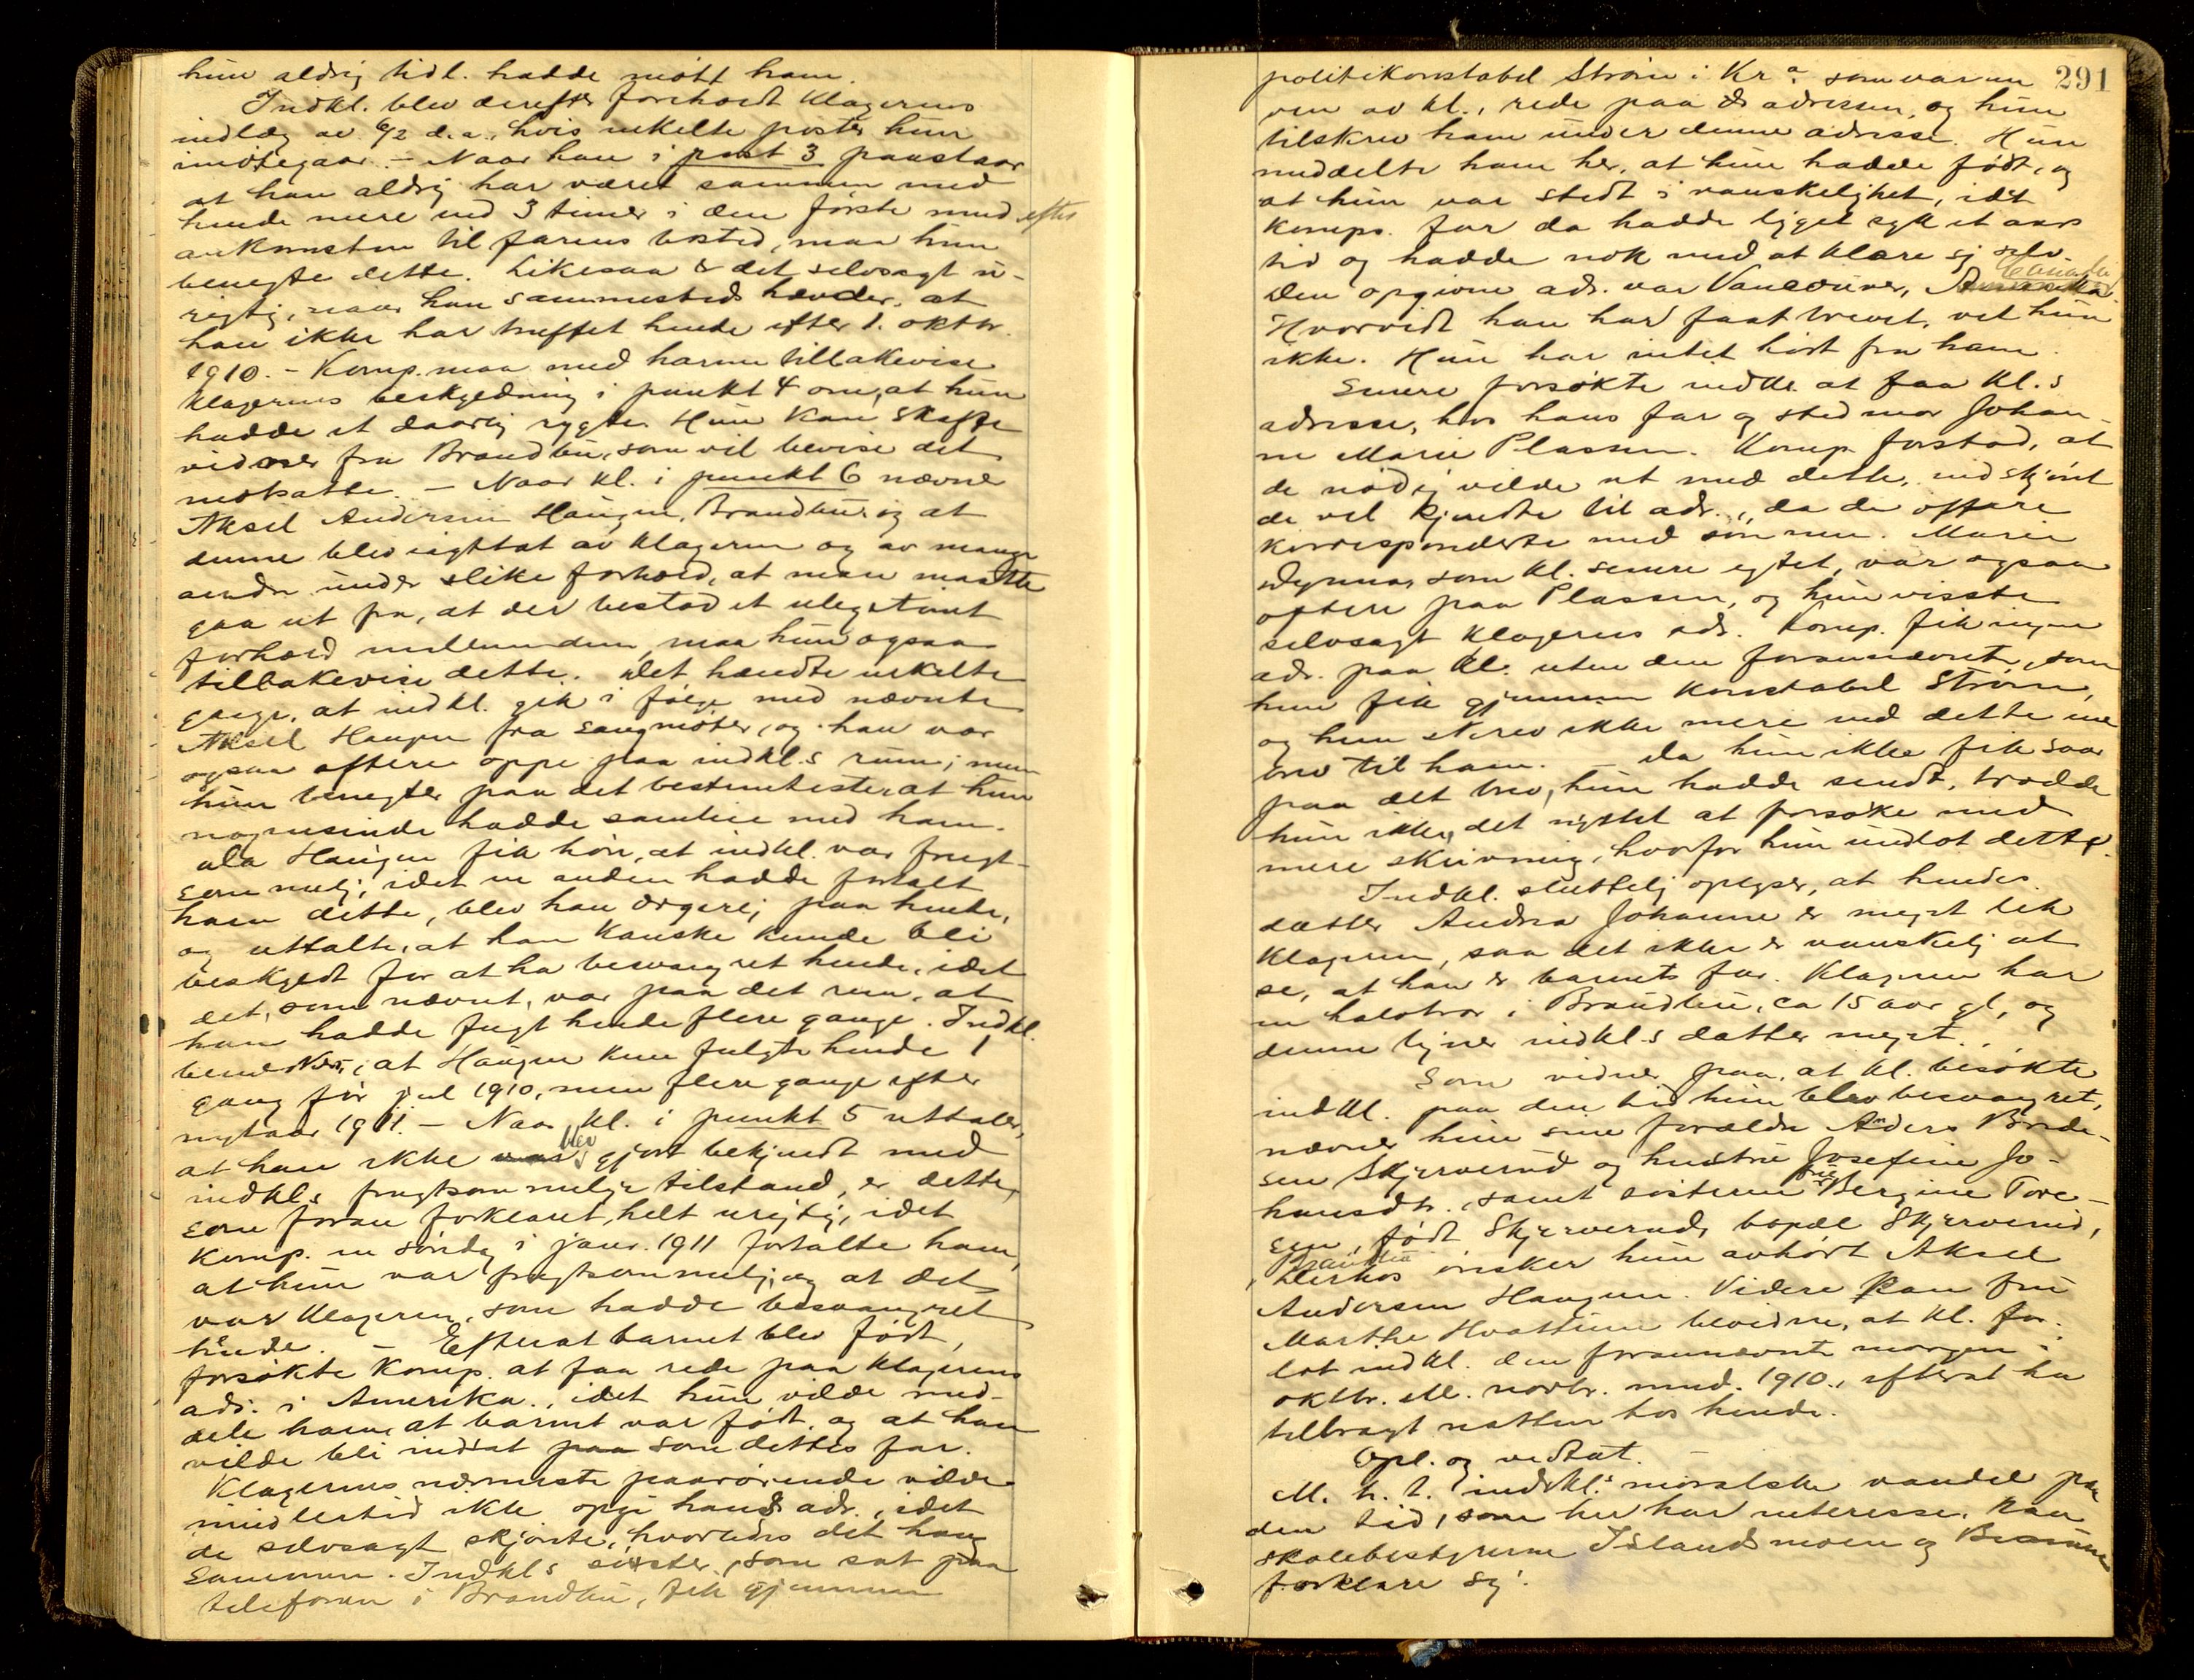 hun aldrig tidl. hadde møtt ham.
Indkl. blev derefter foreholdt klagerens
indlæg av 6/2 d.a., hvis enkelte poster hun
imøtegaar. - Naar han i post 3 paastaar
at han aldrig har været sammen med
hende mere end 3 timer i den første mnd efter
ankomsten til farens bosted, maa hun
benegte dette. Likesaa er det selvsagt u-
rigtig, naar han sammesteds hævder, at
han ikke har truffet hende efter 1. oktbr.
1910. - Komp. maa med harme tilbakevise
klagerens beskyldning i punkt 4 om, at hun
hadde et daarlig rygte. Hun kan skaffe
vidner fra Brandbu, som vil bevise det
motsatte. - Naar kl. i punkt 6 nævner
Aksel Andersen Haugen, Brandbu og at
denne blev iagttat av klageren og av mange
andre under slike forhold, at man maatte
gaa ut fra, at der bestod et ulegetimt
forhold mellem dem, maa hun ogsaa
tilbakevise dette. Det hændte enkelte
gange, at indkl. gik i følge med nævnte
Aksel Haugen fra sangmøter, og han var
ogsaa oftere oppe paa indkl.s rum; men
hun benegter paa det bestemteste, at hun
nogensinde hadde samleie med ham.
Da Haugen fik høre, at indkl. var frugt-
sommelig, idet en anden hadde fortalt
ham dette, blev han ærgerlig paa hende,
og uttalte, at han kanske kunde bli
beskyldt for at ha besvangret hende, idet
det, som nævnt, var paa det rene, at
han hadde fulgt hende flere gange. Indkl.
bemerker, at Haugen kun fulgte hende 1
gang før jul 1910, men flere gange efter
nytaar 1911. - Naar kl. i punkt 5 uttaler,
at han ikke blev gjort bekjendt med
indkl.s frugtsommelige tilstand, er dette,
som foran forklaret, helt urigtig, idet
komp. en søndag i janr. 1911 fortalte ham,
at hun var frugtsommelig, og at det
var klageren, som hadde besvangret
hende. - Efterat barnet blev født,
forsøkte komp. at faa rede paa klagerens
adr. i Amerika, idet hun vilde med-
dele ham, at barnet var født, og at han
vilde bli indsat paa som dettes far.
Klagerens nærmeste paarørende vilde
imidlertid ikke opgi hans adr., idet
de selvsagt skjønte, hvorledes det hang
sammen. Indkl.s søster, som sat paa
telefonen i Brandbu, fik gjennem
291
politikonstabel Strøm i Kr.a som var en
ven av kl., rede paa adressen, og hun
tilskrev ham under denne adresse. Hun
meddelte ham her, at hun hadde født, og
at hun var stedt i vanskelighet, idet
komps. far da hadde ligget syk et aars
tid og hadde nok med at klare sig selv.
Den opgivne adr. var Vancouver, Canada.
Hvorvidt han har faat brevet, vet hun
ikke. Hun har intet hørt fra ham.
Senere forsøkte indkl. at faa kl.s
adresse, hos hans far og stedmor Johan-
ne Marie Plassen. Komp. forstod, at
de nødig vilde ut med dette, endskjønt
de vel kjendte til adr., da de oftere
korresponderte med sønnen. Marie
Dynna, som kl. senere egtet, var ogsaa
oftere paa Plassen, og hun visste
selvsagt klagerens adr. Komp. fik ingen
adr. paa kl. uten den forannævnte, som
hun fik gjennem konstabel Strøm,
og hun skrev ikke mere end dette ene
brev til ham. - Da hun ikke fik svar
paa det brev, hun hadde sendt, trodde
hun ikke, det nyttet at forsøke med
mere skrivning, hvorfor hun undlot dette.
Indkl. sluttelig oplyser, at hendes
datter Andrea Johanne er meget lik
klageren, saa det ikke er vanskelig at
se, at han er barnets far. Klageren har
en halvbror i Brandbu, ca 15 aar gl., og
denne ligner indkl.s datter meget.
Som vidner paa, at kl. besøkte
indkl. paa den tid hun blev besvangret,
nævner hun sine forældre Anders Brede-
sen Skjerverud og hustru Josefine Jo-
hansdtr., samt søsteren frue Bergine Tore-
sen, født Skjerverud, bopæl Skjerverud,
Brandbu
Derhos ønsker hun avhørt Aksel
Andersen Haugen. Videre kan fru
Marthe Hvattum bevidne, at kl. for-
lot indkl. den forannævnte morgen i
oktbr. ell. novbr. mnd. 1910, efterat ha
tilbragt natten hos hende.
Opl. og vedtat.
M. h. t. indkl.s moralske vandel paa
den tid, som her har interesse, kan
skolebestyrerne Islandsmoen og
forklare sig.